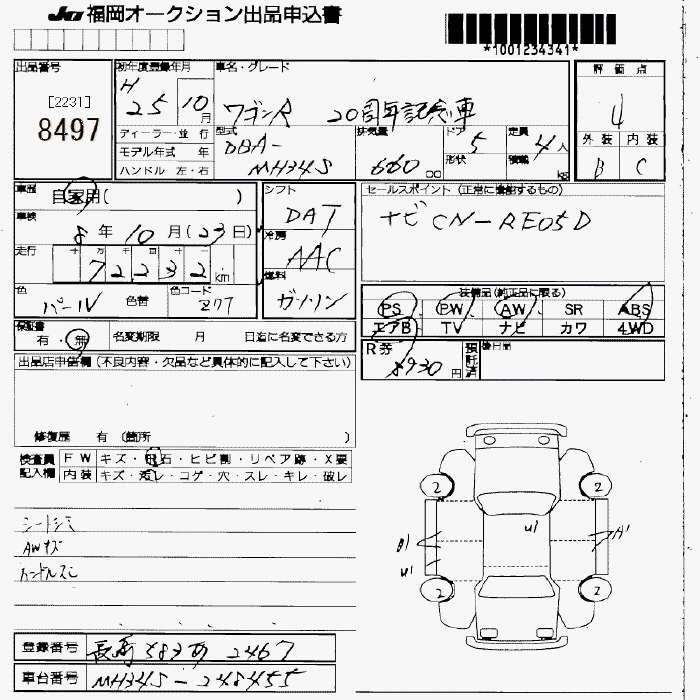 JU 福岡オークション出品申込書
*1001234341*
出品番号
[2231]
8497
初年度登録年月
H 25 10月
車名・グレード
ワゴンR 20周年記念車
評価点
4
外装 内装
B C
ディーラー・並行
モデル年式 年
ハンドル 左・右
型式
DBA-
MH34S
排気量
660 cc
ドア
5
形状
定員
4人
積載 kg
車歴
自家用( )
車検
8年10月(23日)
走行
72232km
色
パール
色替
色コード
Z7T
シフト
DAT
冷房
AAC
燃料
ガソリン
セールスポイント (正常に機能するもの)
ナビCN-RE05D
装備品(純正品に限る)
PS PW AW SR ABS
エアB TV ナビ カワ 4WD
保証書
有・無
名変期限 月 日迄に名変できる方
R券
8930円
預託済
後日品
出品店申告欄 (不良内容・欠品など具体的に記入して下さい)
修復歴 有 (箇所 )
検査員記入欄
FW キズ・飛石・ヒビ割・リペア跡・X要
内装 キズ・汚レ・コゲ・穴・スレ・キレ・破レ
シートシミ
AWキズ
ハンドルスレ
2 2
U1
B1
A1
U1
2 2
登録番号
長崎 583 あ 2467
車台番号
MH34S-248455